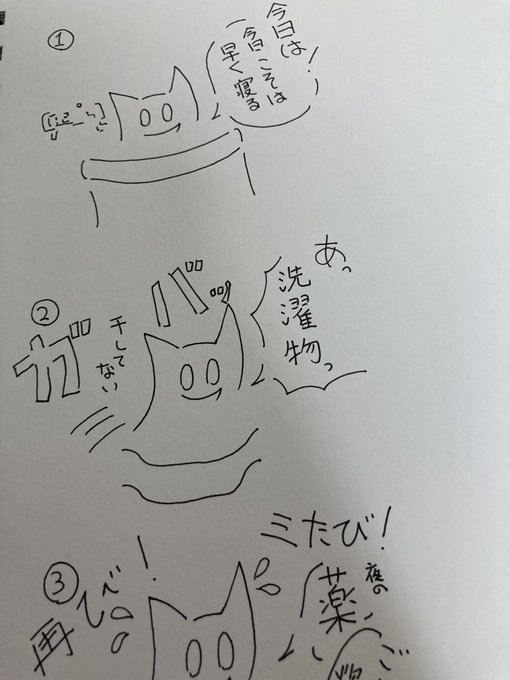 ①
今日は!
今日こそは
早く寝る
②
あっ
洗濯物っ
ガバッ
干してない
③
再び!
ミたび!
夜の
薬